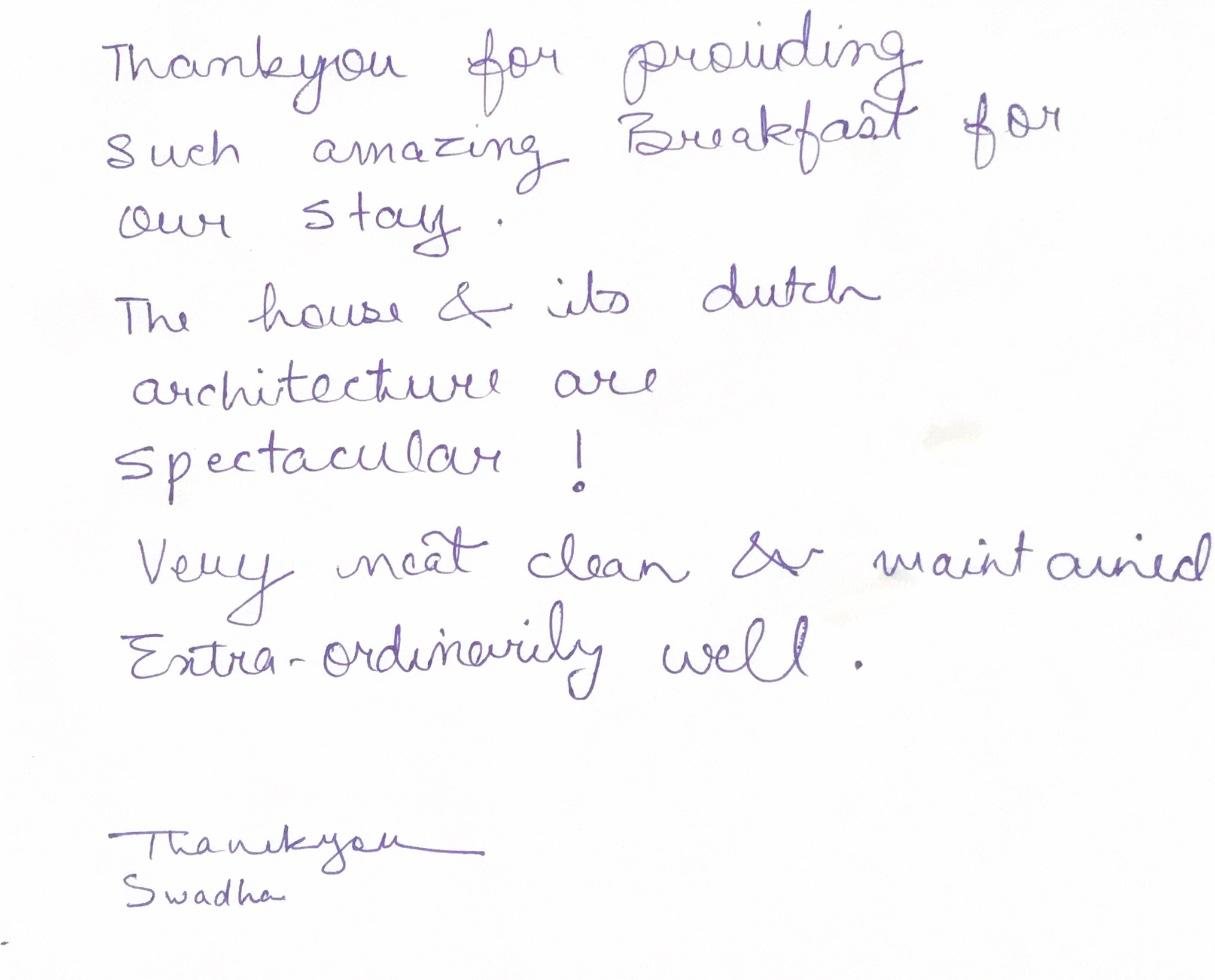 Thankyou for providing
Such amazing Breakfast for
our stay.
The house & its dutch
architecture are
spectacular !
Very neat clean & maintained
Extra-ordinarily well.
Thankyou
Swadha